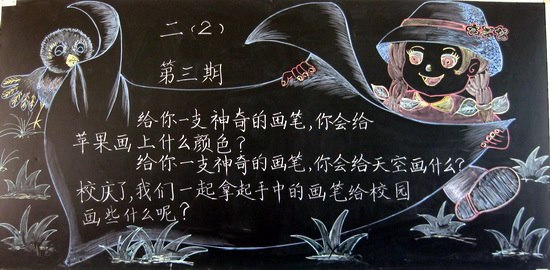 二（2）
第三期
给你一支神奇的画笔，你会给
苹果画上什么颜色？
给你一支神奇的画笔，你会给天空画什么？
校庆了，我们一起拿起手中的画笔给校园
画些什么呢？